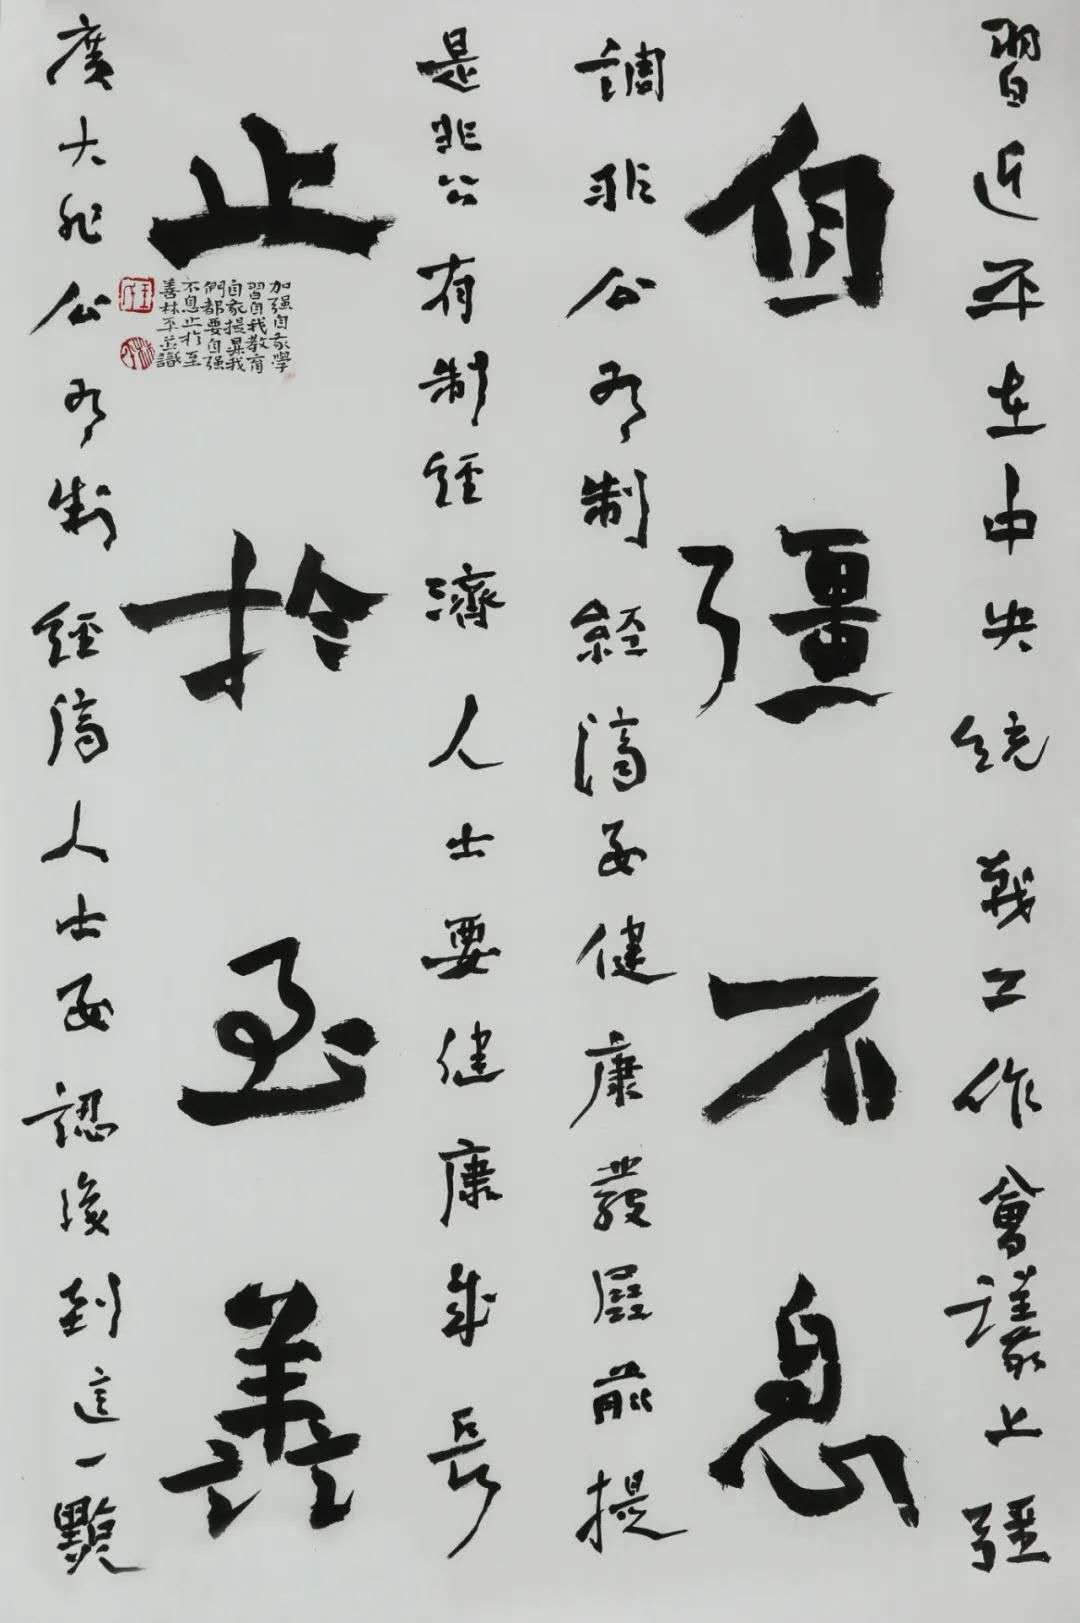 習近平在中央統戰工作會議上强
自彊不息
調非公有制經濟要健康發展前提
是非公有制經濟人士要健康成長
止於至善
加强自我學
習自我教育
自我提昇我
們都要自强
不息止於至
善林平並識
廣大非公有制經濟人士要認識到這一點